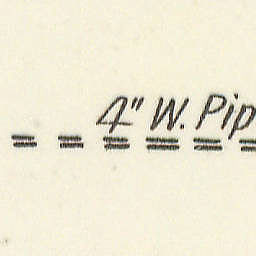 4" W. Pip